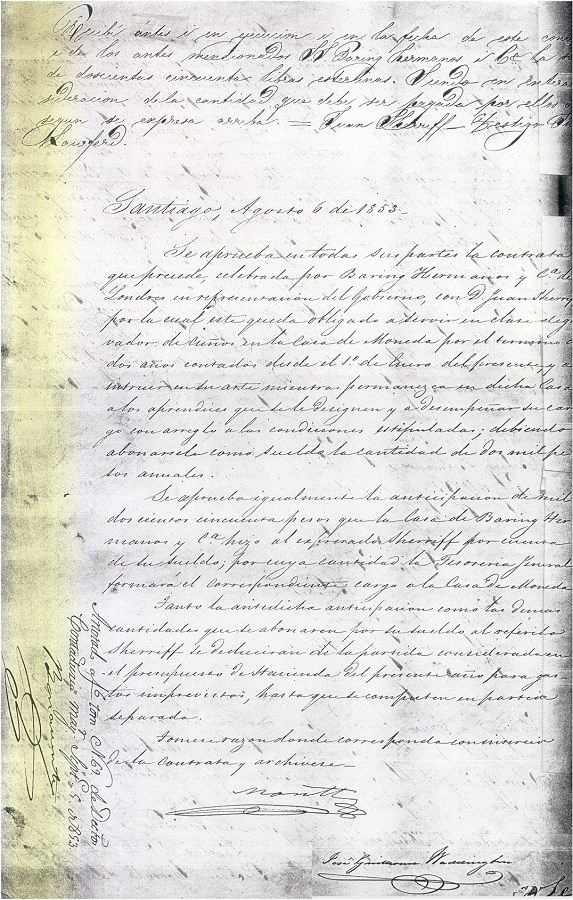 Recibí ántes i en ejecucion i en la fecha de este con
i de los antes mencionados SS Baring hermanos i Ca. la
de doscientas cincuenta libras esterlinas. Siendo en entera
sideracion de la cantidad que debe ser pagada por ellos
segun se espresa arriba. = Juan Sherriff - Testigo
Crawford.
Santiago, Agosto 6 de 1853.
Se aprueba en todas sus partes la contrata
que precede, celebrada por Baring Hermanos y Ca. de
Londres en representacion del Gobierno, con D. Juan Sherriff
por la cual este queda obligado a servir en clase de gra
vador de cuños en la Casa de Moneda por el termino de
dos años contados desde el 1o. de Enero del presente, y a
intruir en su arte mientra permanezca en dicha Casa
a los aprendices que se le designen y a desempeñar su car
go con arreglo a las condiciones estipuladas; debiendo
abonarsele como sueldo la cantidad de dos mil pe
sos anuales.
Se aprueba igualmente la anticipacion de mil
doscientos cincuenta pesos que la Casa de Baring Her
manos y Ca. hizo al expresado Sherriff por cuenta
de su sueldo, por cuya cantidad la Tesoreria Jeneral
formará el correspondiente cargo a la Casa de Moneda
Tanto la antedicha anticipacion como las demas
cantidades que se abonaren por su sueldo al referido
Sherriff se deducirán de la partida considerada en
el presupuesto de Hacienda del presente año para gas
tos imprevistos, hasta que se compute en partida
separada.
Tomese razon donde corresponda con insercion
de la contrata y archivese
Montt
José Guillermo Waddington
Anotado a f 6 tom
Contaduria mayr. Spt. 5 de 1853